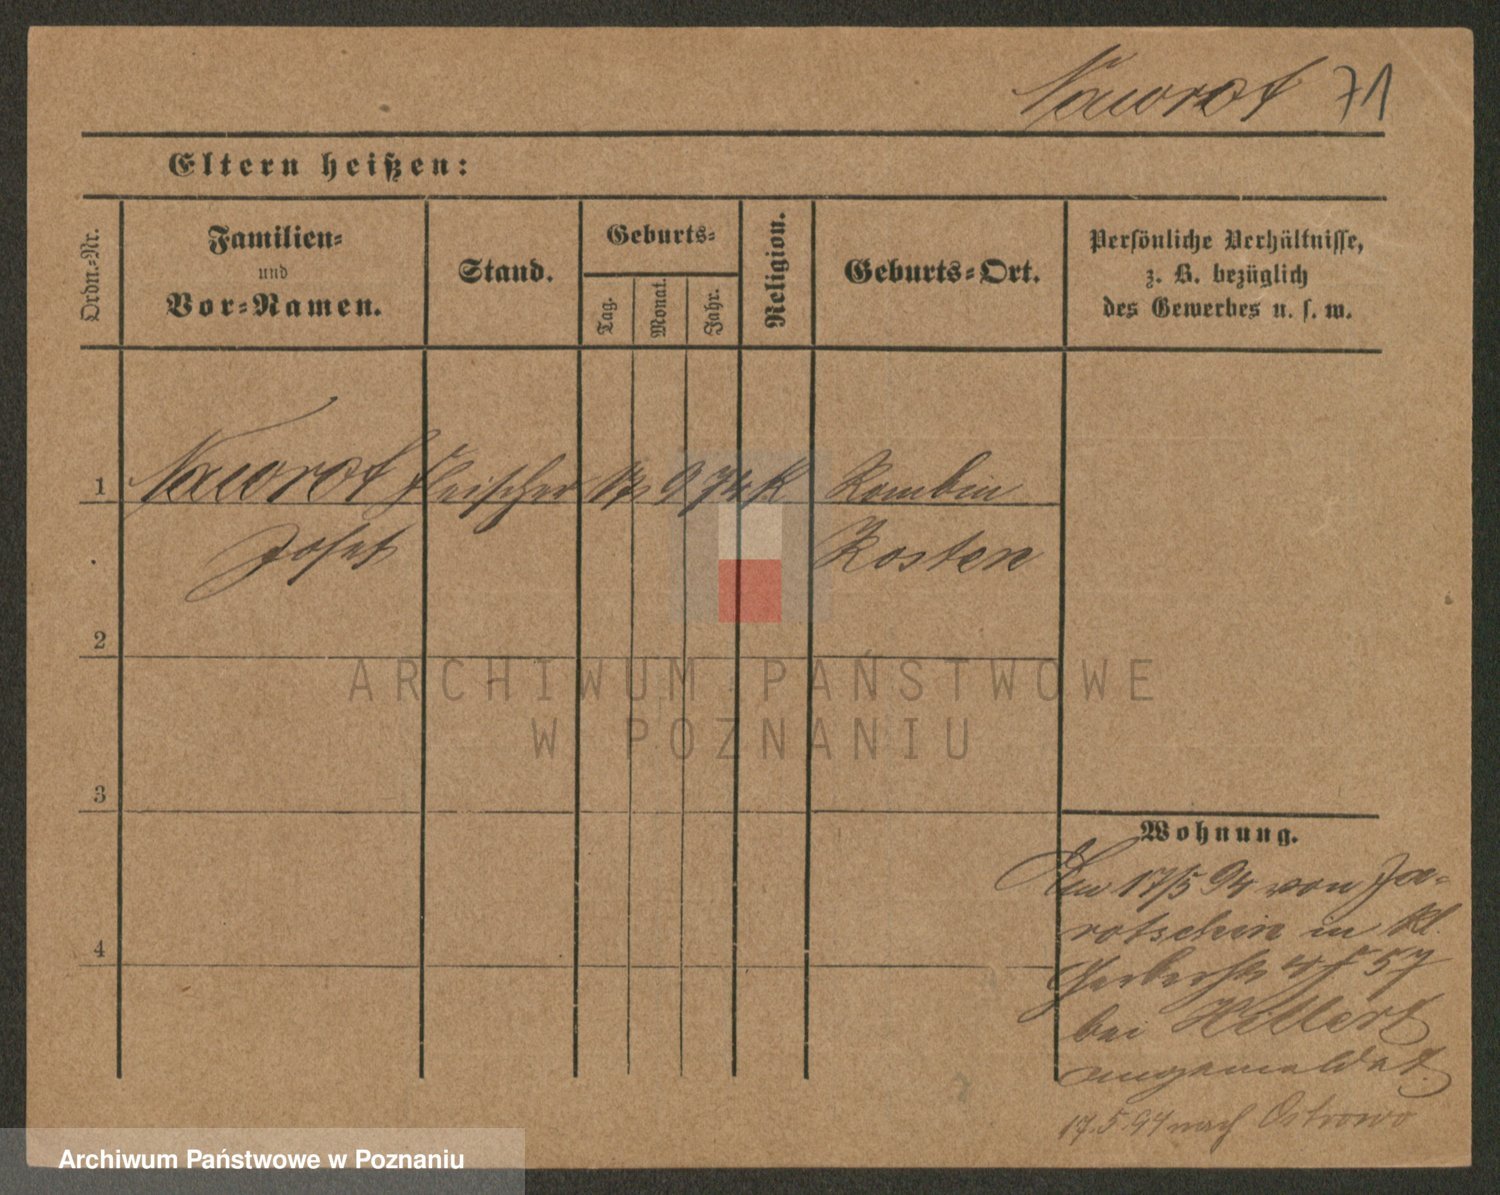 Nawrot 71
Eltern heißen:
Ordn.-Nr.
Familien-
und
Vor-Namen.
Stand.
Geburts-
Tag.
Monat.
Jahr.
Religion.
Geburts-Ort.
Persönliche Verhältnisse,
z. B. bezüglich
des Gewerbes u. s. w.
1 Nawrot Fleischer 17 9 74 K Rombin
Josef Kosten
2
3
4
Wohnung.
Am 17/5 94 von Ja-
rotschin in Kl.
Gerberstr 57
bei Hillert
angemeldet
17.5.94 nach Ostrowo
ARCHIWUM PAŃSTWOWE
W POZNANIU
Archiwum Państwowe w Poznaniu